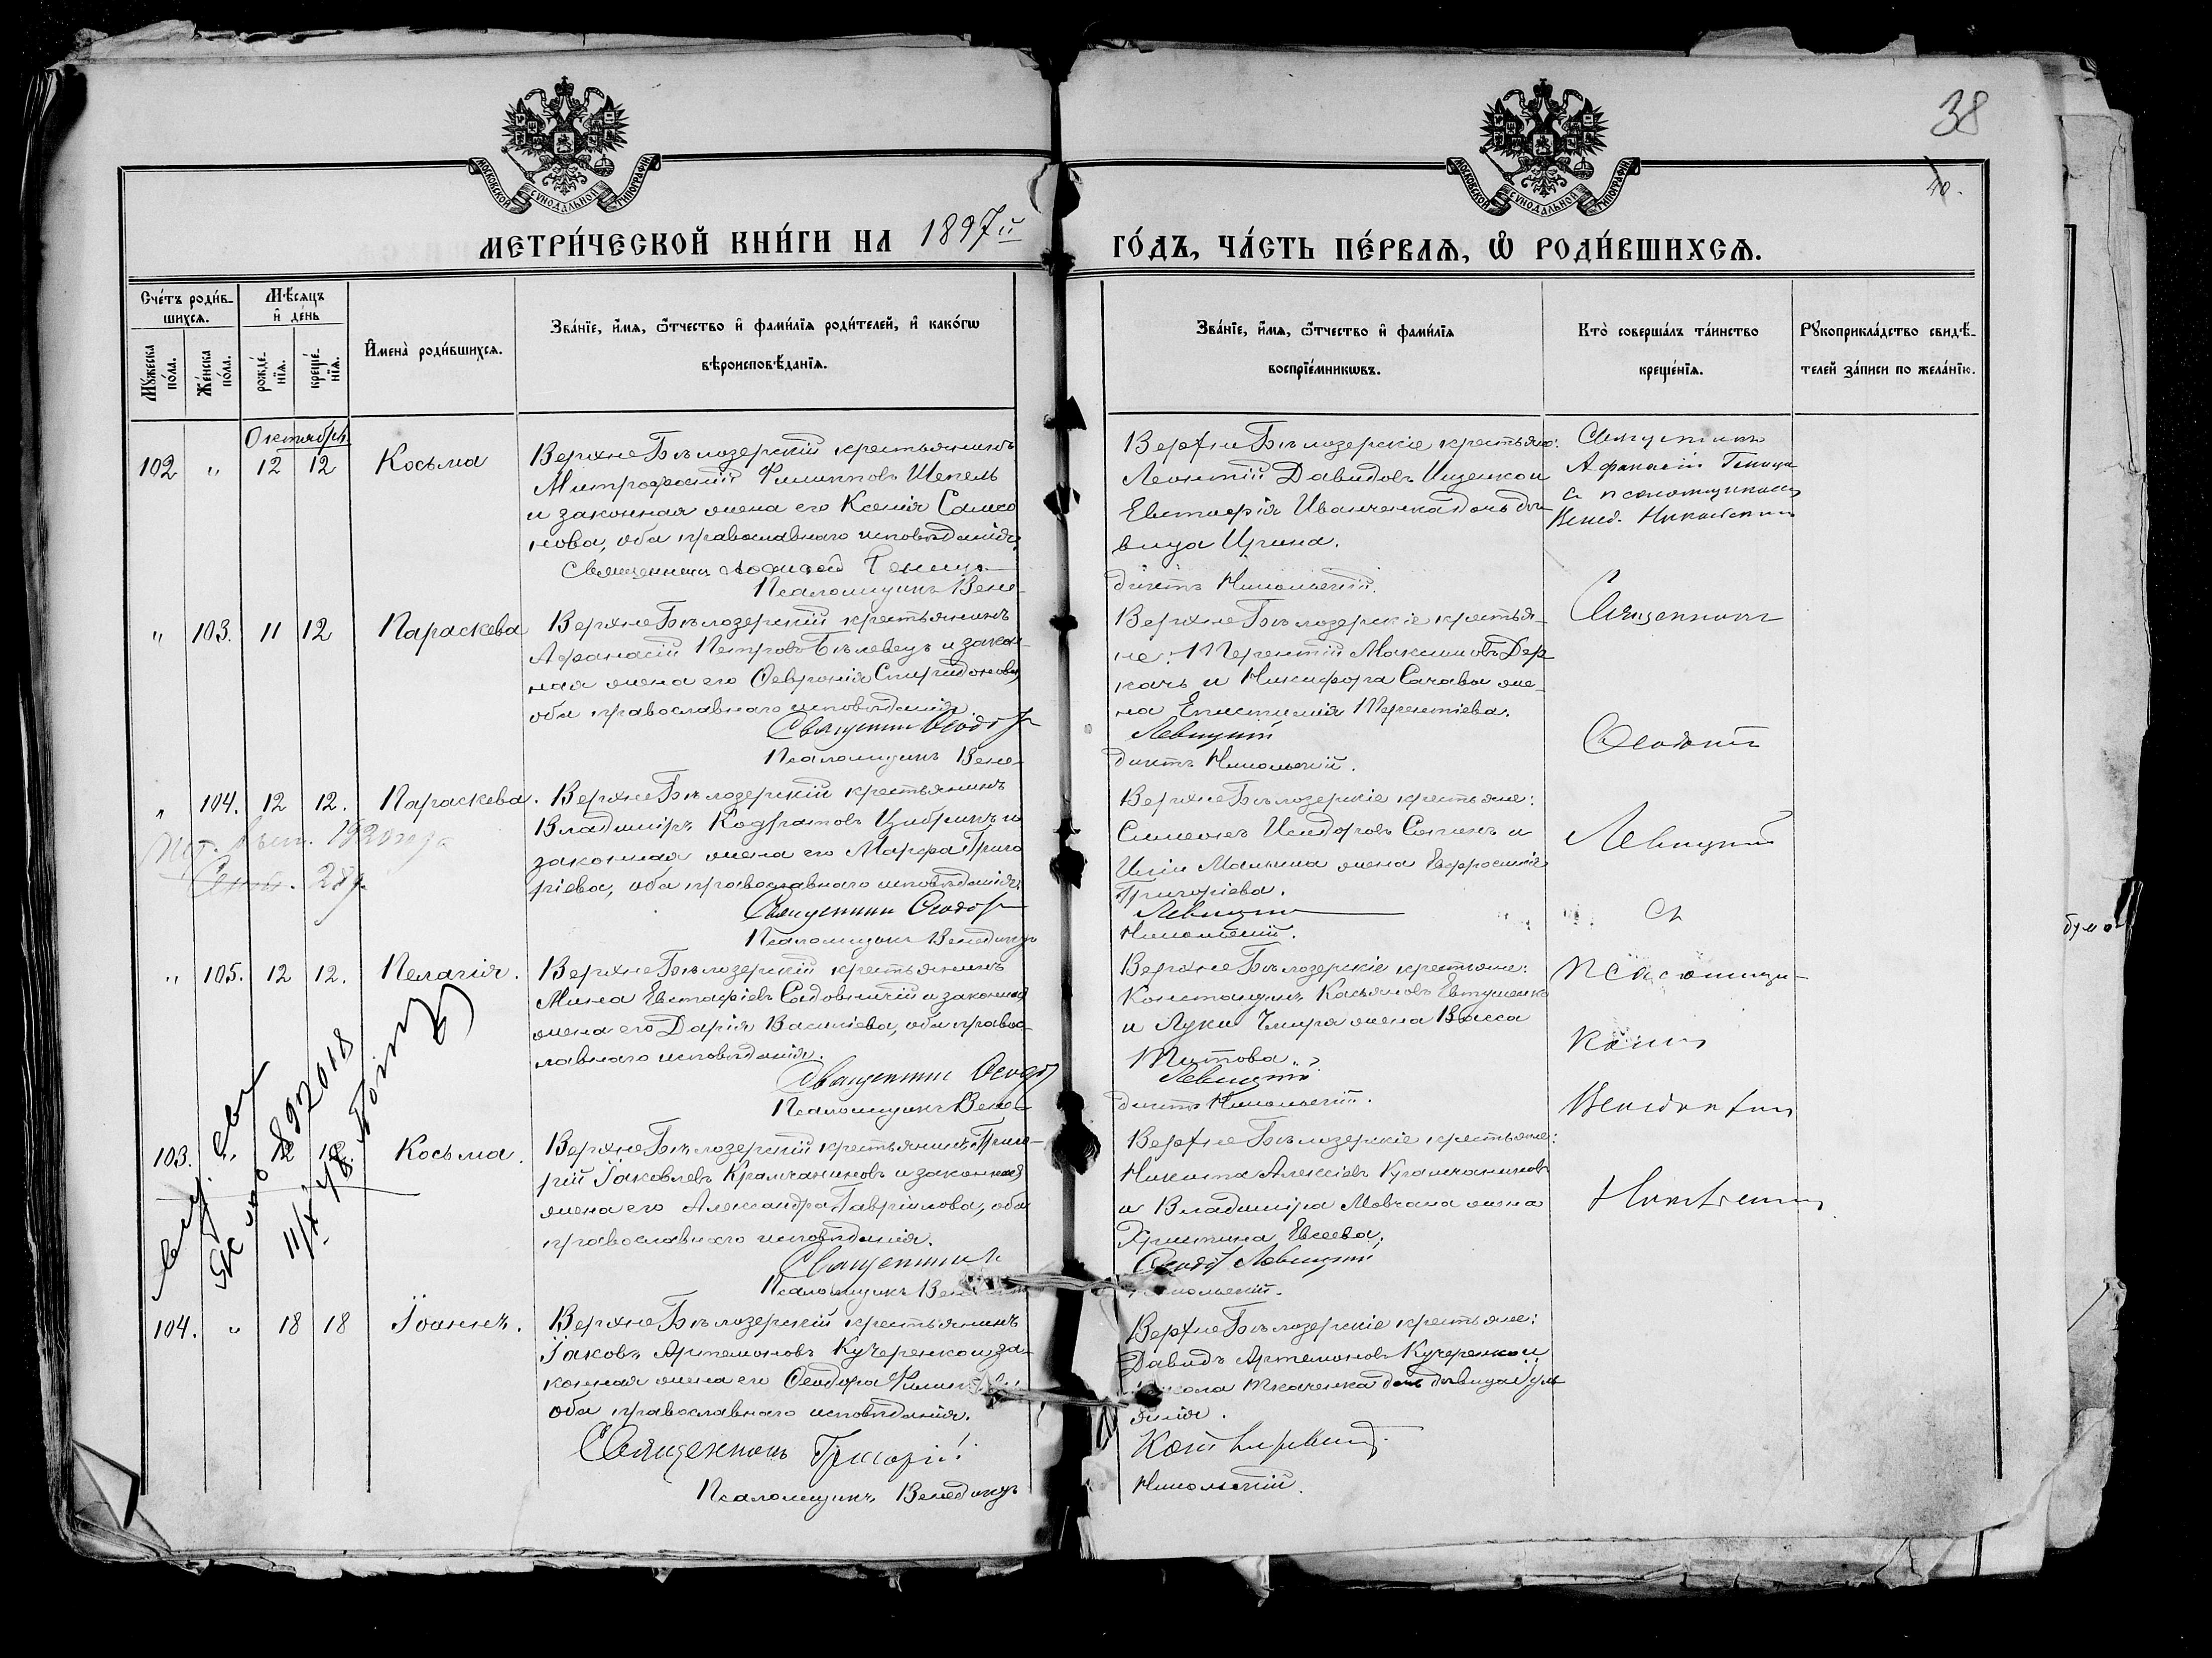 38
40.
МОСКОВСКОЙ СѴНОДАЛЬНОЙ ТИПОГРАФІИ
МОСКОВСКОЙ СѴНОДАЛЬНОЙ ТИПОГРАФІИ
МЕТРИ́ЧЕСКОЙ КНИ́ГИ НА 1897й ГО́ДЪ, ЧА́СТЬ ПЕ́РВАѦ, Ѽ РОДИ́ВШИХСѦ.
Сче́тъ роди́в-
шихсѧ.
Мꙋ́жеска
по́ла.
Же́нска
по́ла.
Мѣ́сѧцъ
и҆ де́нь
рожде́-
нїѧ.
креще́-
нїѧ.
И҆мена̀ роди́вшихсѧ.
Зва́нїе, и҆́мѧ, ѻ҆́тчество и҆ фами́лїѧ роди́телей, и҆ како́гѡ
вѣроисповѣ́данїѧ.
Зва́нїе, и҆́мѧ, ѻ҆́тчество и҆ фами́лїѧ
воспрїе́мникѡвъ.
Кто̀ соверша́лъ та́инство
креще́нїѧ.
Рꙋкоприкла́дство свидѣ́-
телей за́писи по жела́нїю.
Октябрь
102 " 12 12 Косьма
Верхне Бѣлозерскій крестьянинъ
Митрофаній Филипповъ Шепель
и законная жена его Ксенія Самсо
нова, оба православнаго исповѣданія.
Священникъ
Псаломщикъ Вене-
Верхне Бѣлозерскіе крестьяне:
Леонтій Давидовъ Ищенко и
Евстафія Иванченка дочь дѣ-
вица Ирина.
диктъ Никольскій.
Священникъ
Афанасій
съ псаломщикомъ
Венед. Никольскимъ
" 103. 11 12 Параскева
Верхне Бѣлозерскій крестьянинъ
Афанасій Петровъ Бѣлевецъ и закон-
ная жена его Февронія Спиридонова,
оба православнаго исповѣданія
Священникъ Ѳеодоръ
Псаломщикъ Вене-
Верхне Бѣлозерскіе крестья-
не: Терентій Максимовъ Дер-
качъ и Никифора Сачавы же-
на Епистимія Терентіева.
Левицкій
диктъ Никольскій.
Священникъ
Ѳеодоръ
" 104. 12 12. Параскева.
Верхне Бѣлозерскій крестьянинъ
Владиміръ Кодратовъ Цибринъ и
законная жена его Марфа Григо
ріева, оба православнаго исповѣданія.
Священникъ Ѳеодоръ
Псаломщикъ Венедиктъ
1920 года
28 д.
Верхне Бѣлозерскіе крестьяне:
Симеонъ Исидоровъ Сапинъ и
Иліи Малыша жена Евфросинія
Григоріева.
Левицкій
Никольскій.
Левицкій
съ
" 105. 12 12. Пелагія.
Верхне Бѣлозерскій крестьянинъ
Мина Евстафіевъ Садовничій и законная
жена его Дарія Василіева, оба правос-
лавнаго исповѣданія.
Священникъ Ѳеодоръ
Псаломщикъ Вене-
Верхне Бѣлозерскіе крестьяне:
Константинъ Касьяновъ Евтушенко
и Луки Чмиря жена Васса
Титова.
Левицкій
диктъ Никольскій.
псаломщи-
комъ
Венедиктомъ
103. " 12 12. Косьма.
Верхне Бѣлозерскій крестьянинъ Григо-
рій Іаковлевъ Крамчаниновъ и законная
жена его Александра Гавріилова, оба
православнаго исповѣданія.
Священникъ
Псаломщикъ Венедиктъ
11/X 48
Верхне Бѣлозерскіе крестьяне:
Никита Алексіевъ Крамчаниновъ
и Владиміра Мовчана жена
Христина Евсеева.
Ѳеодоръ Левицкій
Никольскій.
Никольскимъ
104. " 18 18 Іоаннъ.
Верхне Бѣлозерскій крестьянинъ
Іаковъ Артемоновъ Кучеренко и за-
конная жена его Ѳеодора Филиппова
оба православнаго исповѣданія.
Священникъ Григорій
Псаломщикъ Венедиктъ
Верхне Бѣлозерскіе крестьяне:
Давидъ Артемоновъ Кучеренко и
Ткаченка дочь дѣвица Іул
іанія.
Никольскій.